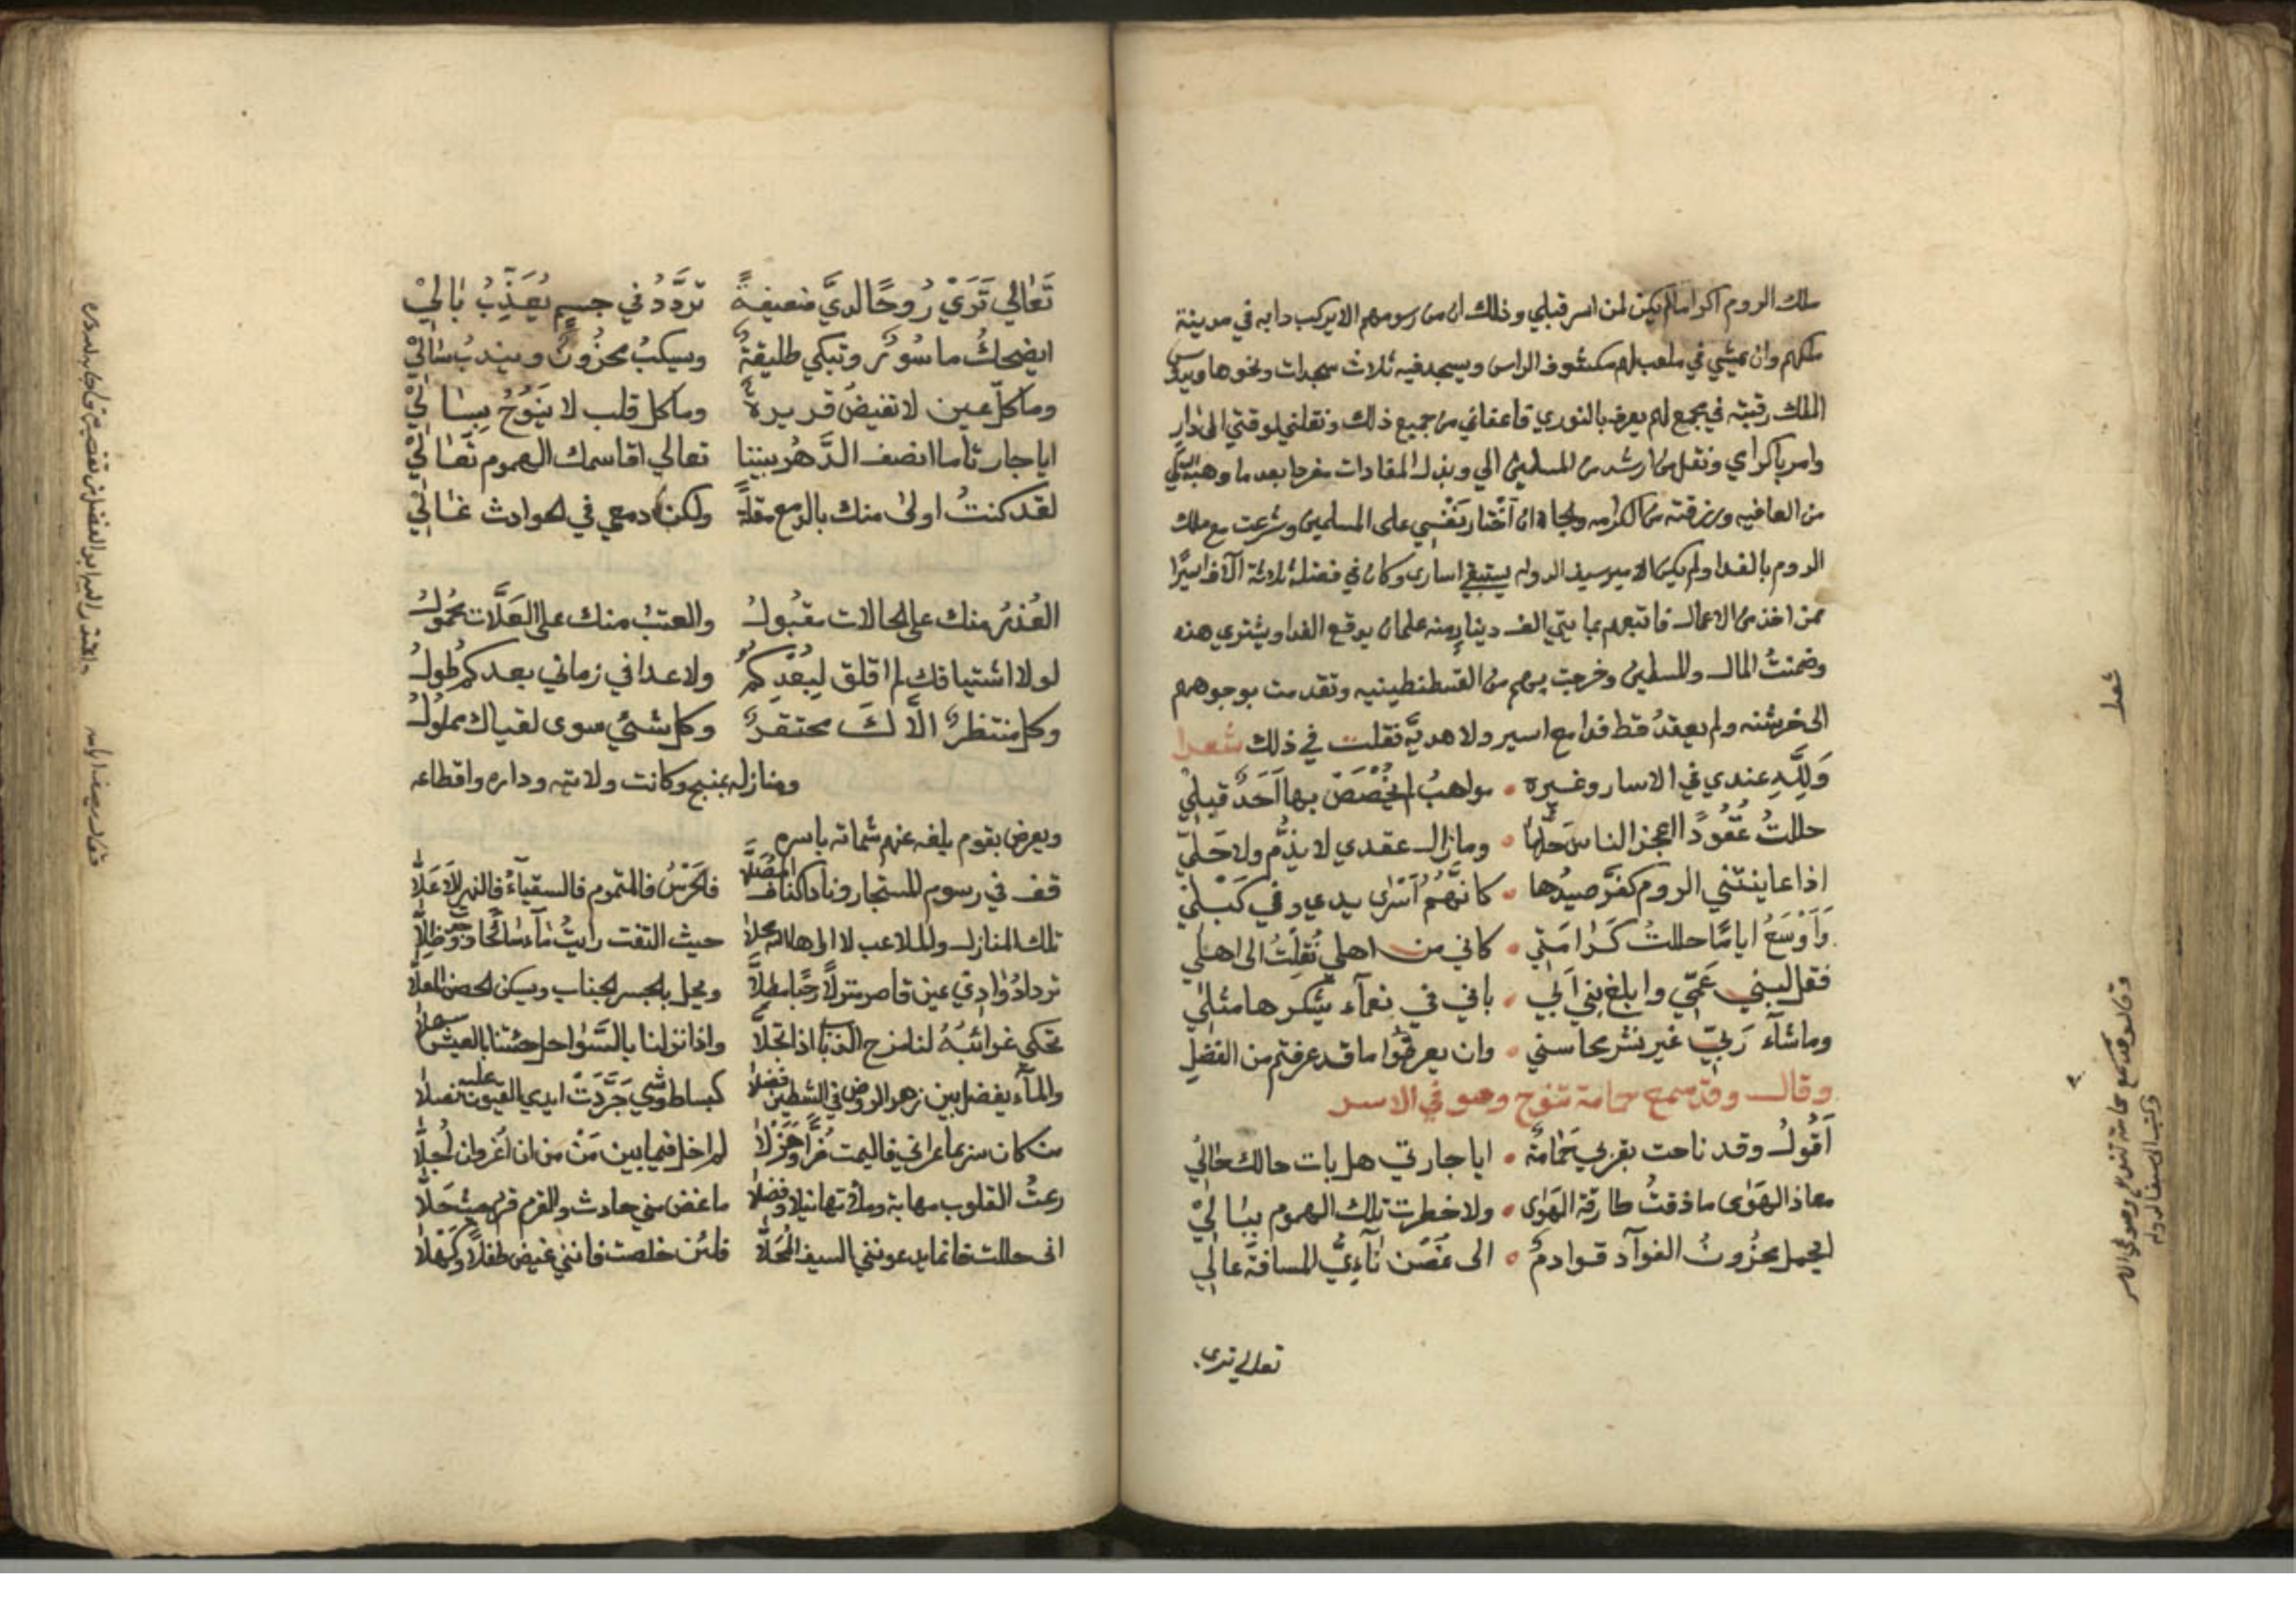 ملك الروم اكراما لم يكن لمن اسر قبلي وذلك ان من رسومهم الا يركب دابه في مدينة
ملكهم وان يمشي في ملعب لهم مكشوف الراس ويسجد فيه ثلاث سجدات ونحوها ويدوس
الملك رقبته في مجمع لهم يعرف بالنوري فاعفاني من جميع ذلك ونقلني لوقتي الى دار
وامر باكرامي ونقل من ارشد من المسلمين الي وبذل المفادات مفردا بعد ما وهبه الله لي
من العافيه ورزقته من الكرامه والجاه ان اختار نفسي على المسلمين وشرعت مع ملك
الروم بالفدا ولم يكن الامير سيف الدوله يستبقي اسارى وكان في فضلة ثلاثة آلاف اسيرًا
ممن اخذ من الاعمال فابتعهم بمايتي الف دينار رومنه علمان يوقع الفدا ويشترى هذه
وضمنتُ المال والمسلمين وخرجت بهم من القسطنطينيه وتقدمت بوجوههم
الى خرشنه ولم يعقد قط فدا مع اسير ولا هديّه فقلت في ذلك شعرا
وَلِلّهِ عندي في الاسار وغيره • مواهبُ لم يُخْصَصْ بها اَحَدٌ قبلِيْ
حللتُ عُقُودًا اعجز الناسَ حَلُّها • وما زال عقدي لا يذُمّ ولا حَلِيّ
اذا عاينتني الروم كفّر صيدُها • كانَّهُمُ اَسْرَى يدي وفي كَبْلِيْ
وَاَوْسَعُ ايامًا حللتُ كَرَامَتِي • كاني من اهلي نُقِلْتُ الى اهلي
فقل لبني عَمِّي وابلغ بني اَبِي • باني في نعمآء يشكرها مثلي
وما شآء رَبِيّ غير نشر محاسني • وان يعرفوا ما قد عرفتم من الفضلِ
وقال وقد سمع حمامة تنوح وهو في الاسر
اَقُولُ وقد ناحت بقربي حَمَامَةٌ • ايا جارتي هل بات حالك حالِيْ
معاذ الهَوَى ما ذقتُ طارقة الهَوَى • ولا خطرت تلك الهموم ببَالِيْ
ايحمل محزُونُ الفوآد قوادمٌ • الى غُصُن نآءِيُّ المسافة عالِي
تعالي تري.
شعرا
وقال وقد سمع حمامة تنوح وهو في الاسر
وكتب الى سيف الدوله
تَعَالي تَرَيْ رُوحًا لديَّ ضعيفةً تردَّدُ في جسمٍ يُعَذِّبُ بَالِيْ
ايضحكُ ماسُورٌ وتبكي طليقةٌ ويسكبُ محزُونٌ ويندبُ سَالِيْ
وما كلّ عين لا تفيضُ قريرةٌ وما كل قلب لا يَنُوحُ بِسَالِيْ
ايا جارتا ما انصف الدَّهرُ بيننا تعالي اقاسمك الهموم تَعَالِيْ
لقد كنتُ اولى منك بالدمع مقلةً ولكن دمعي في الحوادث غَالِيْ
العُذرُ منك على الحالات مقبُولُ والعتبُ منك على العَلَّات محمُولُ
لولا اشتياقك لم اقلق لبُعْدِكُمُ ولا عدا في زماني بعدكم طولُ
وكل منتظرٌ الّا لكَ محتقرٌ وكل شيْ سوى لقياك مملُولُ
ومنازله بمنبج وكانت ولايته وداره واقطاعه
ويعرض بقوم بلغه عنهم شماته باسره
قف في رسوم المستجاب وناد اكناف المصلَّا فالجَرْسُ فالميموم فالسقياءُ فالنهر الاَعلَا
تلك المنازل والملاعب لا اراها الله محلا حيث التفت رايتُ مآء سائحًا ووجدت ظِلَّا
ترداد وادي عين قاصر منزلًا رحبًا مطلّا ويحل بالجسر الجناب ويسكن الحصن المعلّا
تحكي غرائبُهُ لنا اذا تجلّا واذا نزلنا بالسَّواحل جئتنا بالعيش سهلا
والمآء يفصل بين زهر الروض في الشطين فصلا كبساط وشي جَرَّدَتْ ايدي القيون عليه نصلا
من كان سر بما عراني فليمت ضرًا وهَزْلَا لم اخل فيما بين مَنْ من ان اُعَز وان اُجلّا
رعتُ القلوب مهابة وملأتها نبلا وفضلا ما غض مني حادث والقرم قرم حيث حَلّا
انى حللت فانما يدعونني السيف المُحَلَّا فلئن خلصت فانني غيض طفلًا وكَهْلا